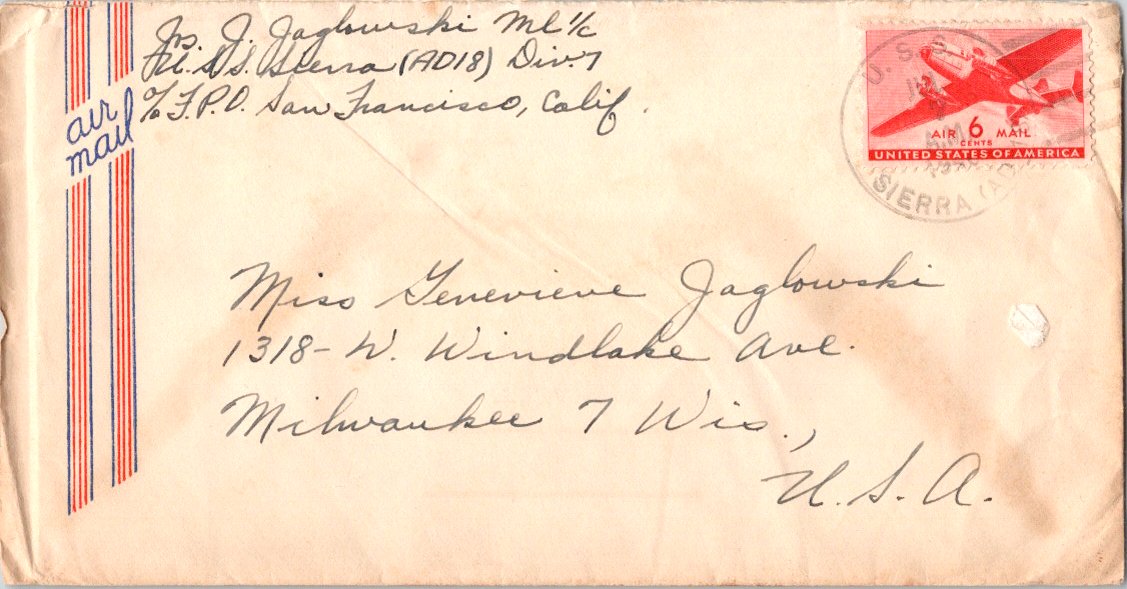 Jos. J. Jaglowski Ml 1/c
U.S.S. Sierra (AD18) Div. 7
c/o F.P.O. San Francisco, Calif.
air
mail
U.S.S.
SIERRA (AD
AIR 6 MAIL
CENTS
UNITED STATES OF AMERICA
Miss Genevieve Jaglowski
1318 - W. Windlake Ave.
Milwaukee 7 Wis.,
U. S. A.